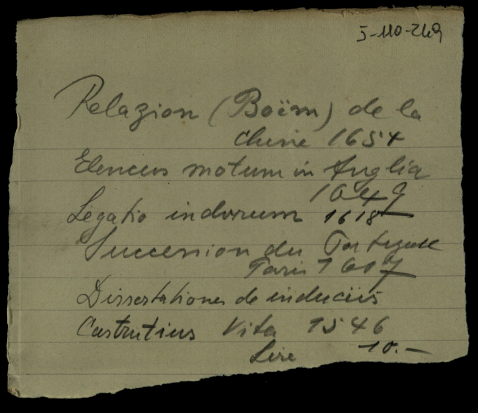 5-110-249
Relazion (Boëm) de la
Chine 1654
Elencus motum in Anglia
1649
Legatio indorum 1618
Succession du Portugal
Paris 1607
Dissertationes de induciis
Castrutius Vita 1546
Lire 10.-